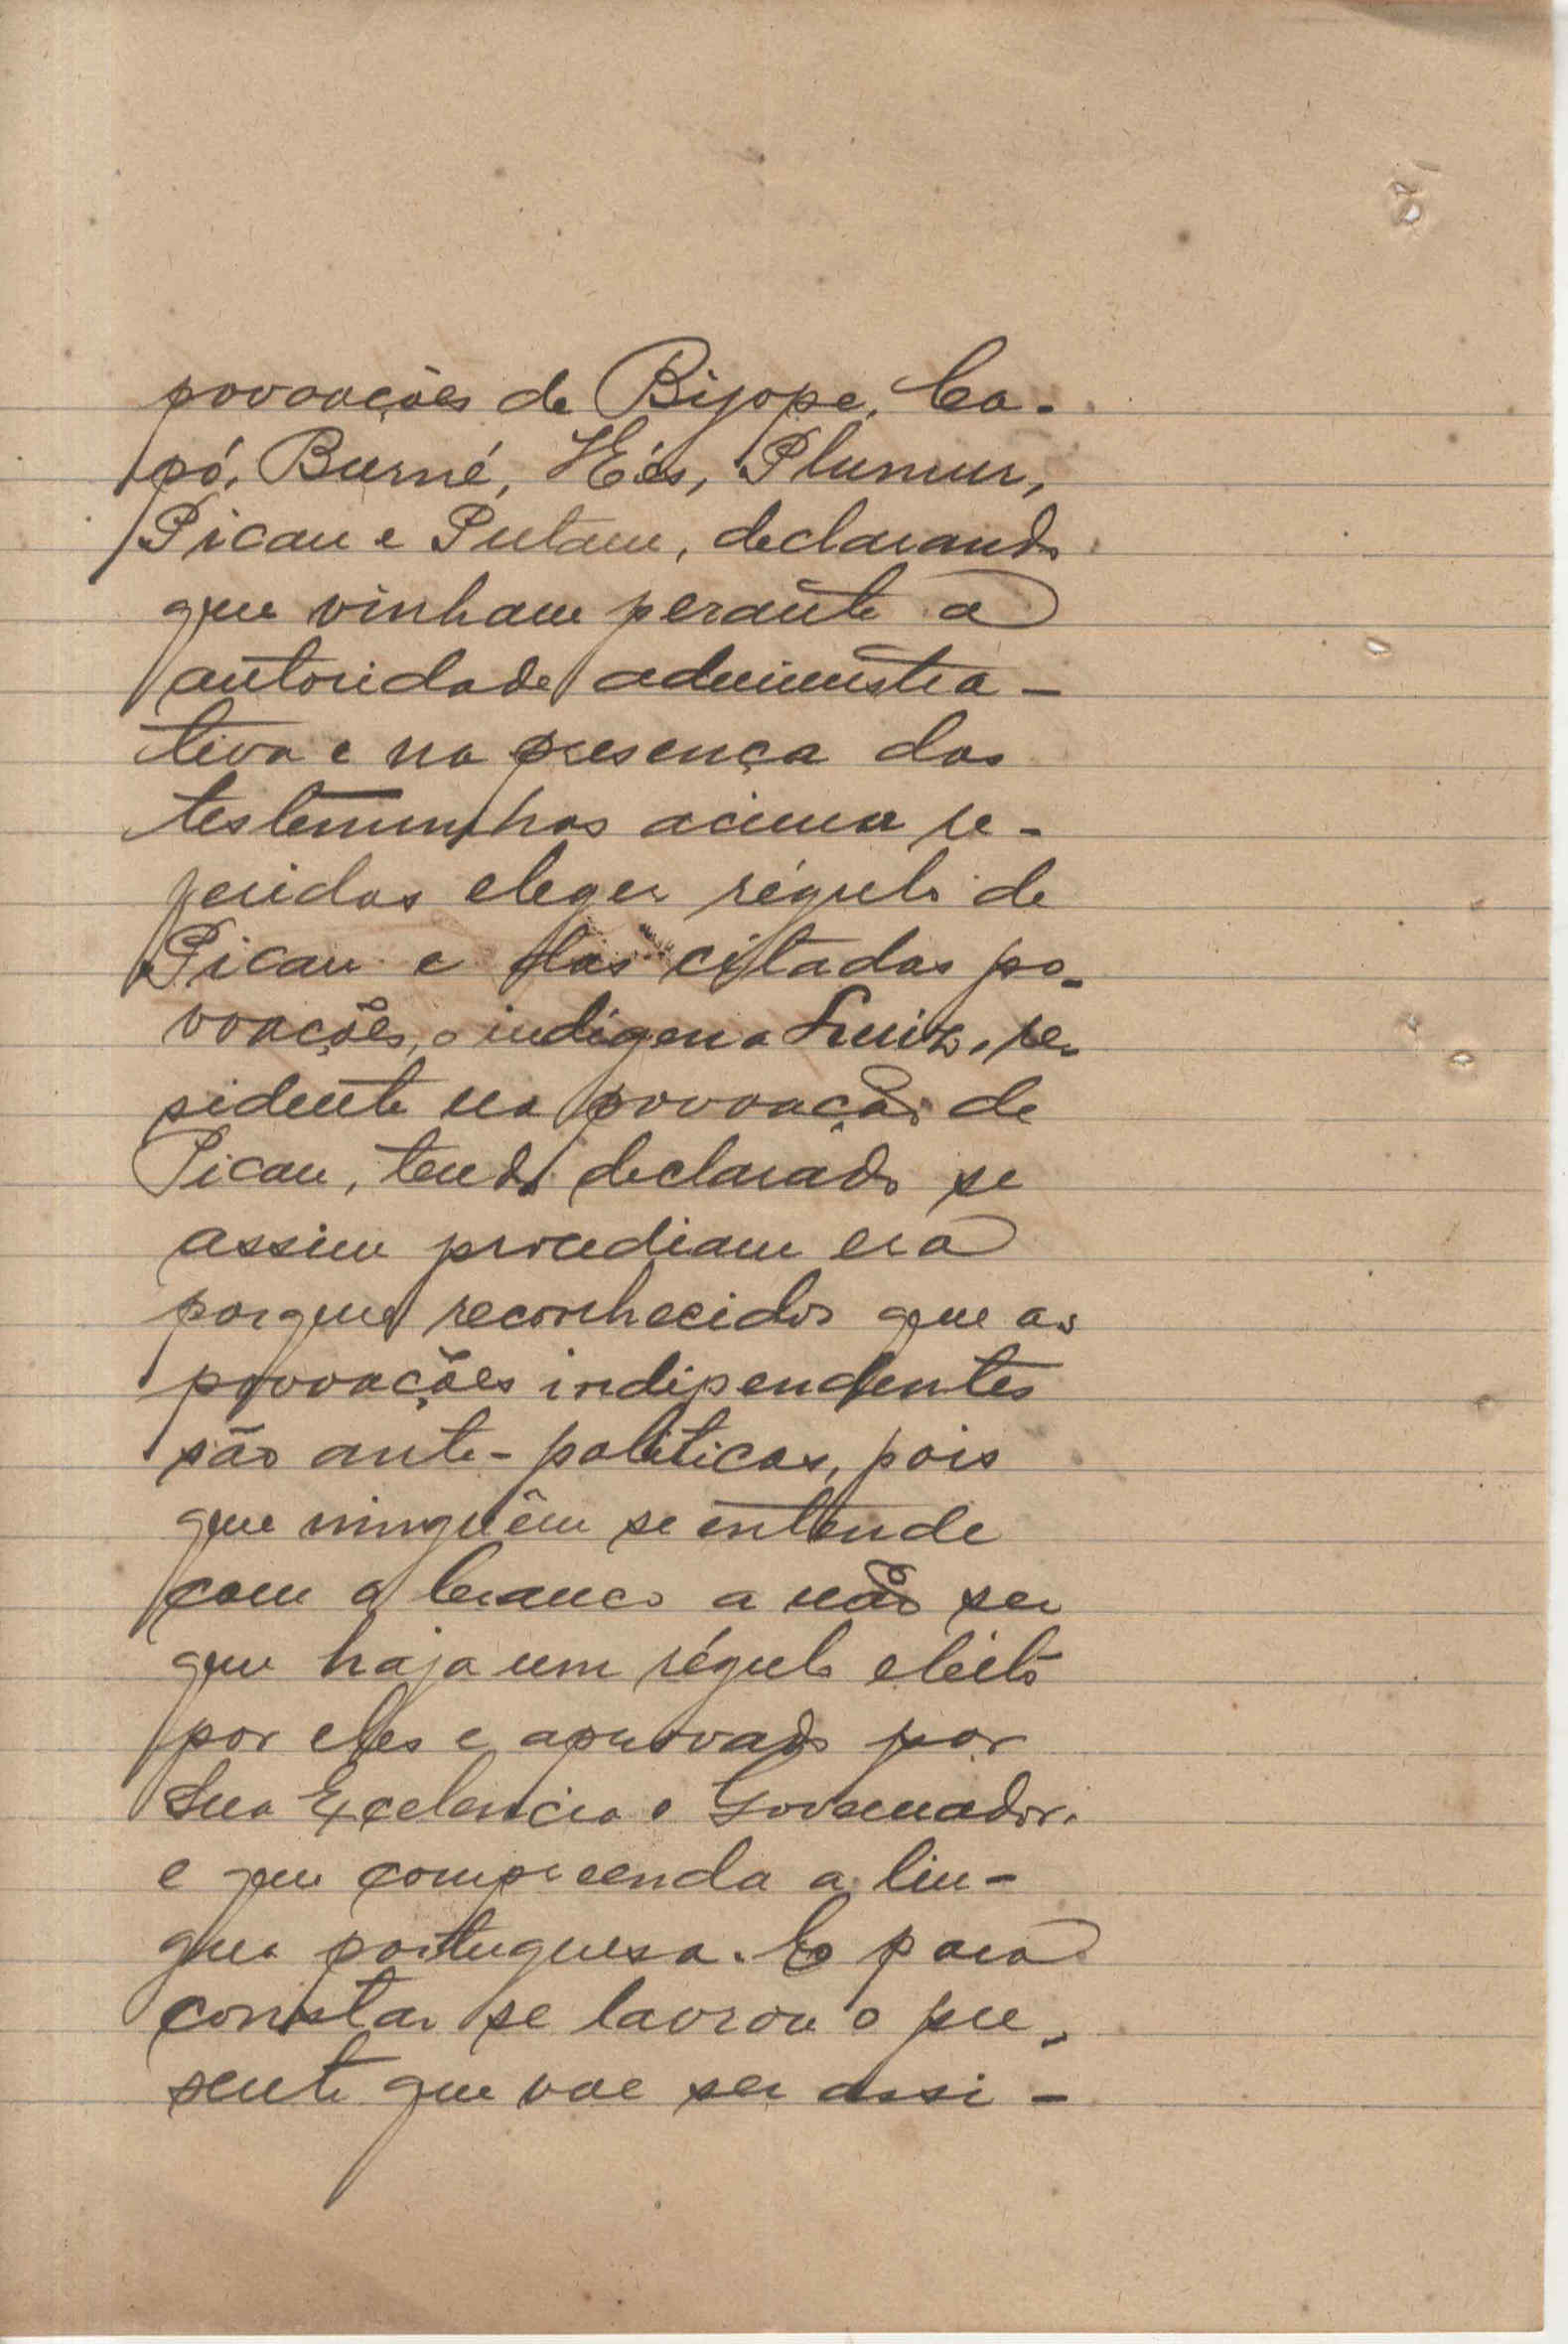 povoações de Bijope, Ca-
pó, Burné, Hés, Plumur,
Picau e Putam, declarando
que vinham perante a
autoridade administra-
tiva e na presença das
testemunhas acima re-
feridas eleger régulo de
Picau e das citadas po-
voações, o indigena Luiz, re-
sidente na povoação de
Picau, tendo declarado se
assim procediam era
porque reconhecidos que as
povoações indipendentes
são ante-politicas, pois
que ninguêm se entende
com o branco a não ser
que haja um régulo eleito
por eles e aprovado por
Sua Excelencia o Governador.
e que compreenda a lin-
gua portuguesa. E para
constar se lavrou o pre-
sente que vae ser assi-